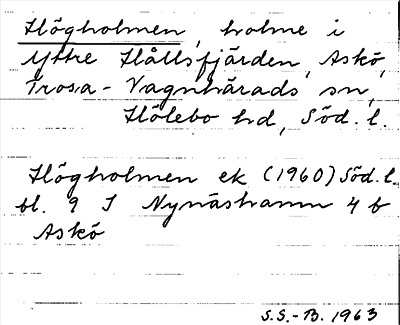 Högholmen, holme i
Yttre Hållsfjärden, Askö,
Trosa-Vagnhärads sn,
Hölebo hd, Söd. l.
Högholmen ek (1960) Söd. l.
bl. 9 I Nynäshamn 4 b
Askö
S.S.-B. 1963